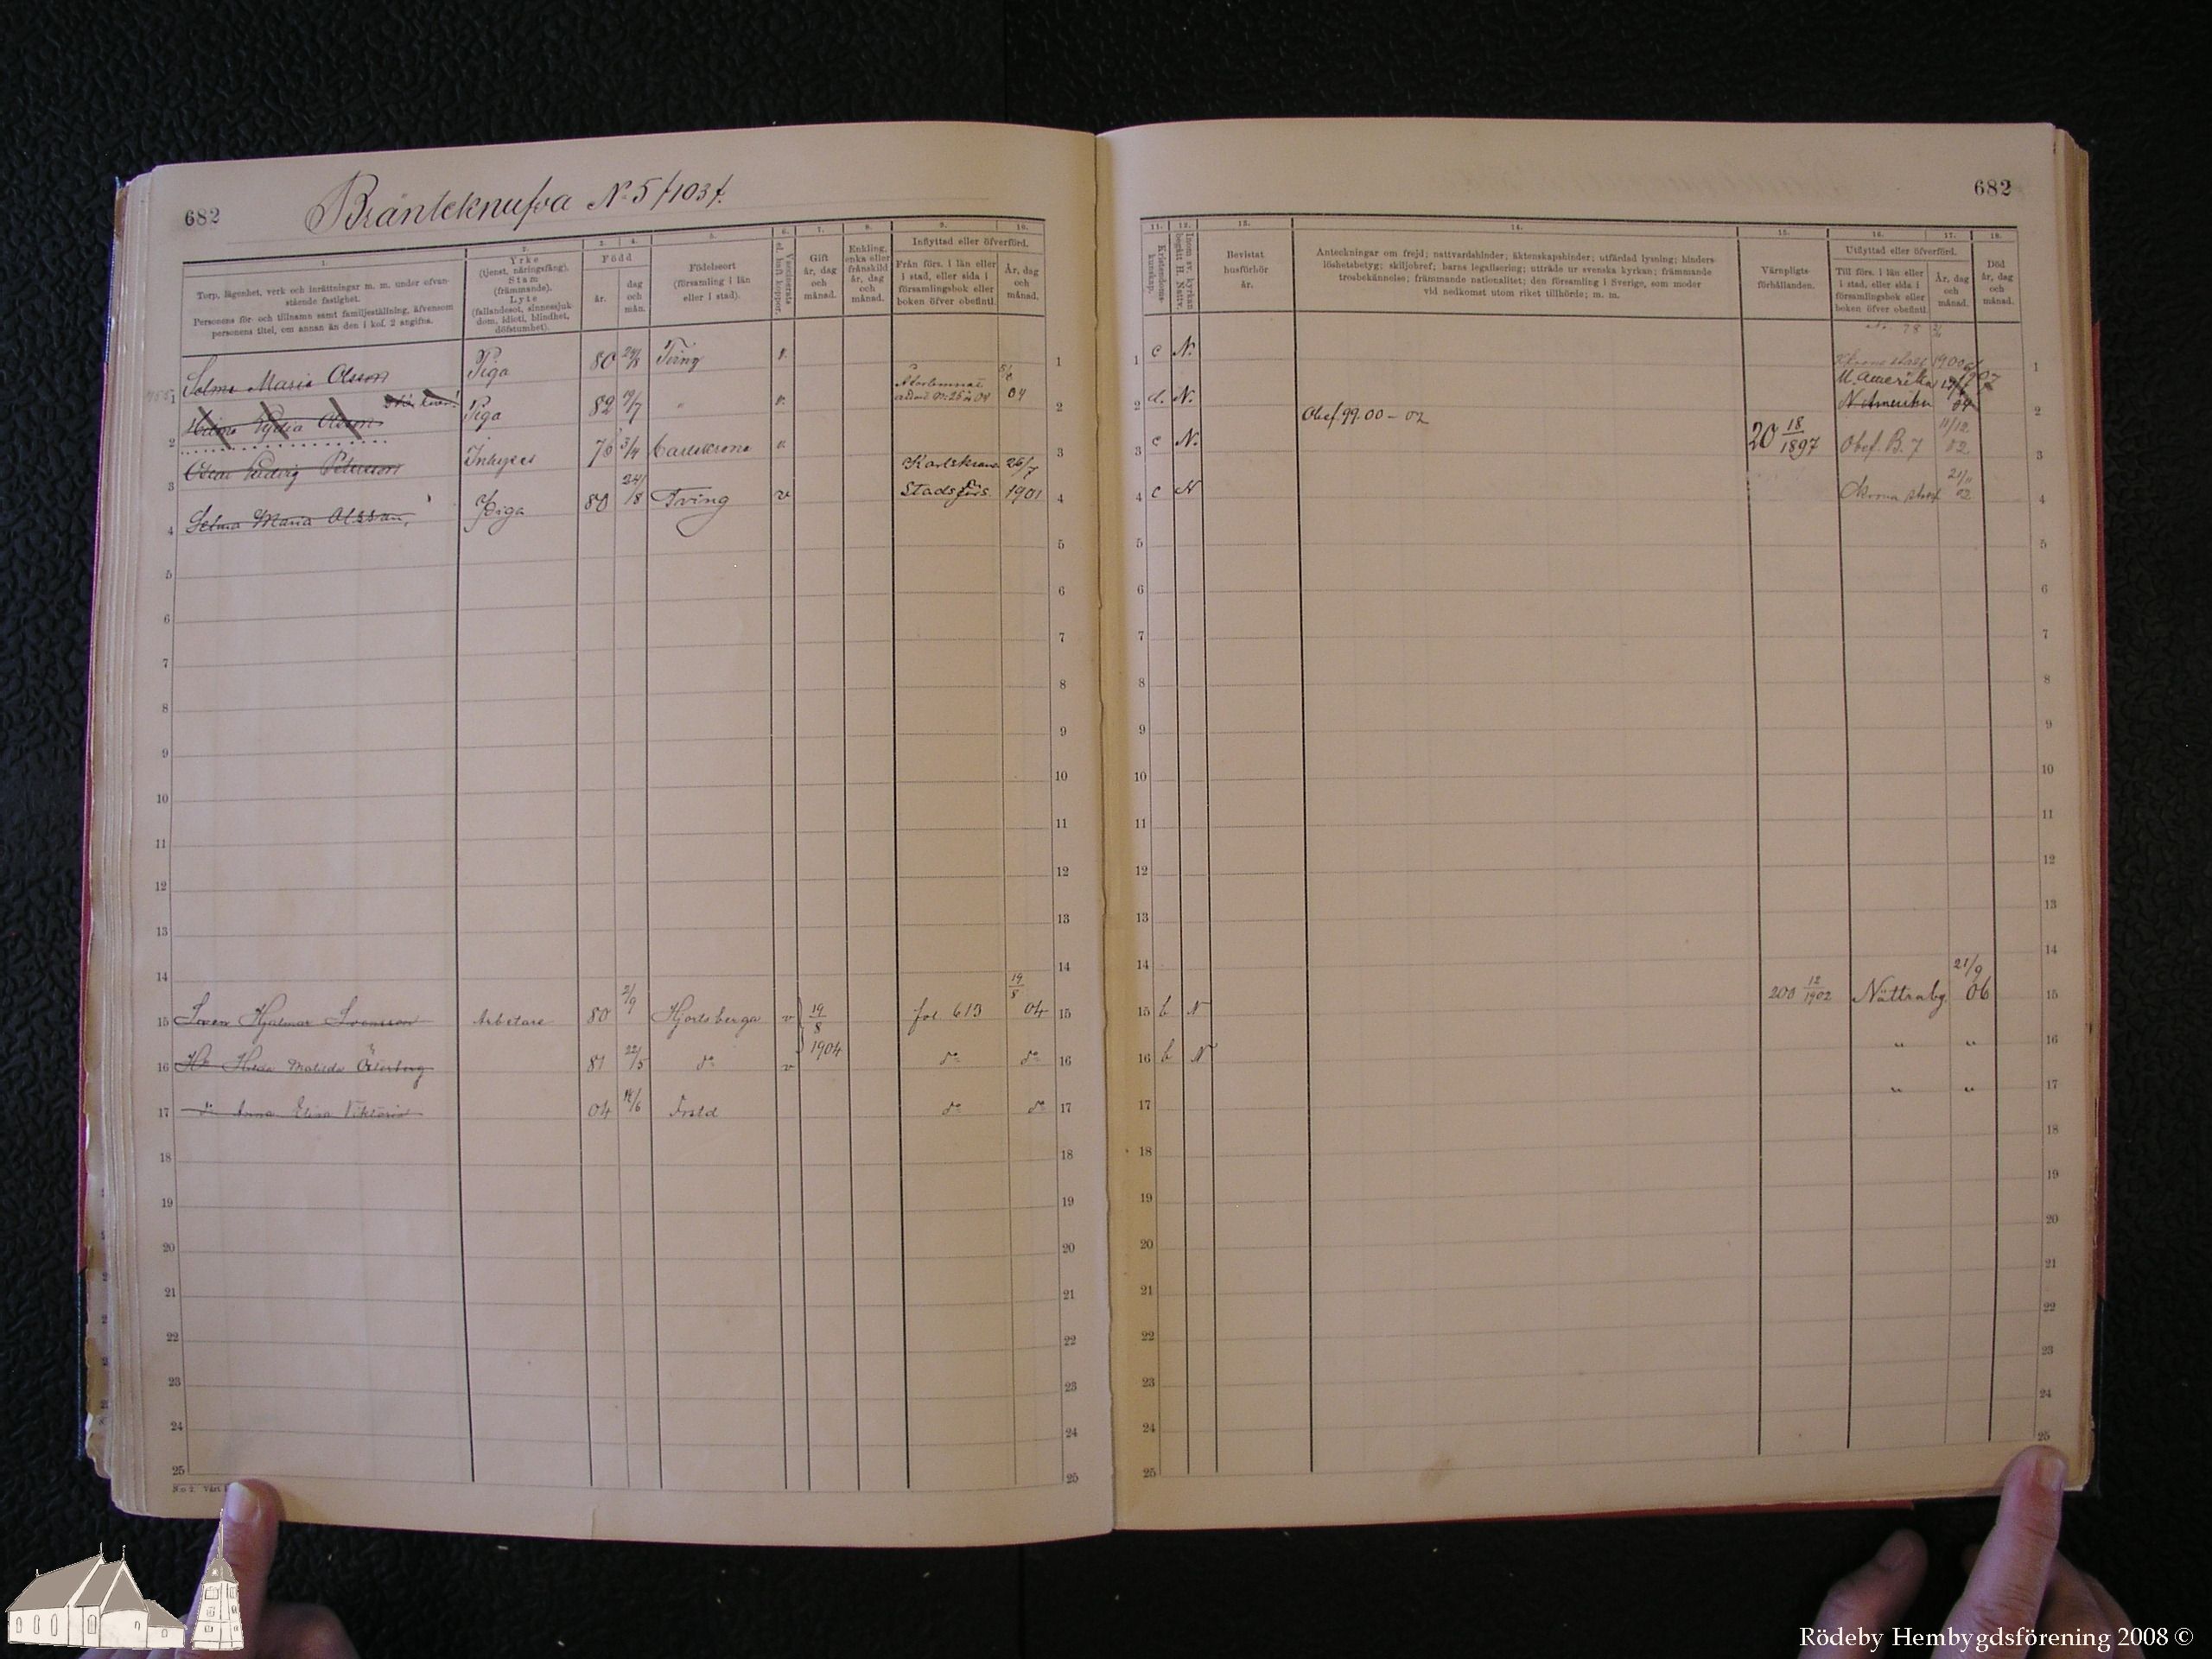 682
Bränteknufva No 5 /103/.
1.
Torp, lägenhet, verk och inrättningar m. m. under ofvan-
stående fastighet.
Personens för- och tillnamn samt familjeställning, äfvensom
personens titel, om annan än den i kol. 2 angifna.
2.
Yrke
(tjenst, näringsfång).
Stam
(främmande).
Lyte
(fallandesot, sinnessjuk-
dom, idioti, blindhet,
döfstumhet).
3. 4.
Född
år.
dag
och
mån.
5.
Födelseort
(församling i län
eller i stad).
6.
Vaccinerats
el. haft koppor.
7.
Gift
år, dag
och
månad.
8.
Enkling,
enka eller
frånskild
år, dag
och
månad.
9. 10.
Inflyttad eller öfverförd.
Från förs. i län eller
i stad, eller sida i
församlingsbok eller
boken öfver obefintl.
År, dag
och
månad.
1 Selma Maria Olsson Piga 80 24/8 Tving v. 1
2 Hilma Lydia Olsson Piga 82 19/7 " v. 04 2
3 Oscar Ludvig Petersson Inhyses 76 3/4 Carlskrona v. 3
4 Selma Maria Olsson, Piga 80 24/8 Tving v Karlskrona Stadsförs. 26/7 1901 4
5 5
6 6
7 7
8 8
9 9
10 10
11 11
12 12
13 13
14 14
15 Sven Hjalmar Svensson Arbetare 80 2/9 Hjortsberga v 19/8 1904 fol. 613 19/8 04 15
16 H. Hilda Matilda Österberg 81 22/5 do v do do 16
17 d. Anna Elisa Viktoria 04 14/6 do do 17
18 18
19 19
20 20
21 21
22 22
23 23
24 24
25 25
N:o 2.
682
11.
Kristendoms-
kunskap.
12.
Inom sv. kyrkan
begått H. Nattv.
13.
Bevistat
husförhör
år.
14.
Anteckningar om frejd; nattvardshinder; äktenskapshinder; utfärdad lysning; hinders-
löshetsbetyg; skiljobref; barns legalisering; utträde ur svenska kyrkan; främmande
trosbekännelse; främmande nationalitet; den församling i Sverige, som moder
vid nedkomst utom riket tillhörde; m. m.
15.
Värnpligts-
förhållanden.
16. 17.
Utflyttad eller öfverförd.
Till förs. i län eller
i stad, eller sida i
församlingsbok eller
boken öfver obefintl.
År, dag
och
månad.
18.
Död
år, dag
och
månad.
1 c N. 1900 1
2 d. N. Obef. 99.00 – 02 N. Amerika 1907 N. Amerika 04 2
3 c N. 20 18/1897 Obef. B. 7 11/12 02 3
4 c N 21/11 02 4
5 5
6 6
7 7
8 8
9 9
10 10
11 11
12 12
13 13
14 14
15 b N 200 12/1902 Nättraby. 21/9 06 15
16 b N " " 16
17 " " 17
18 18
19 19
20 20
21 21
22 22
23 23
24 24
25 25
Rödeby Hembygdsförening 2008 ©